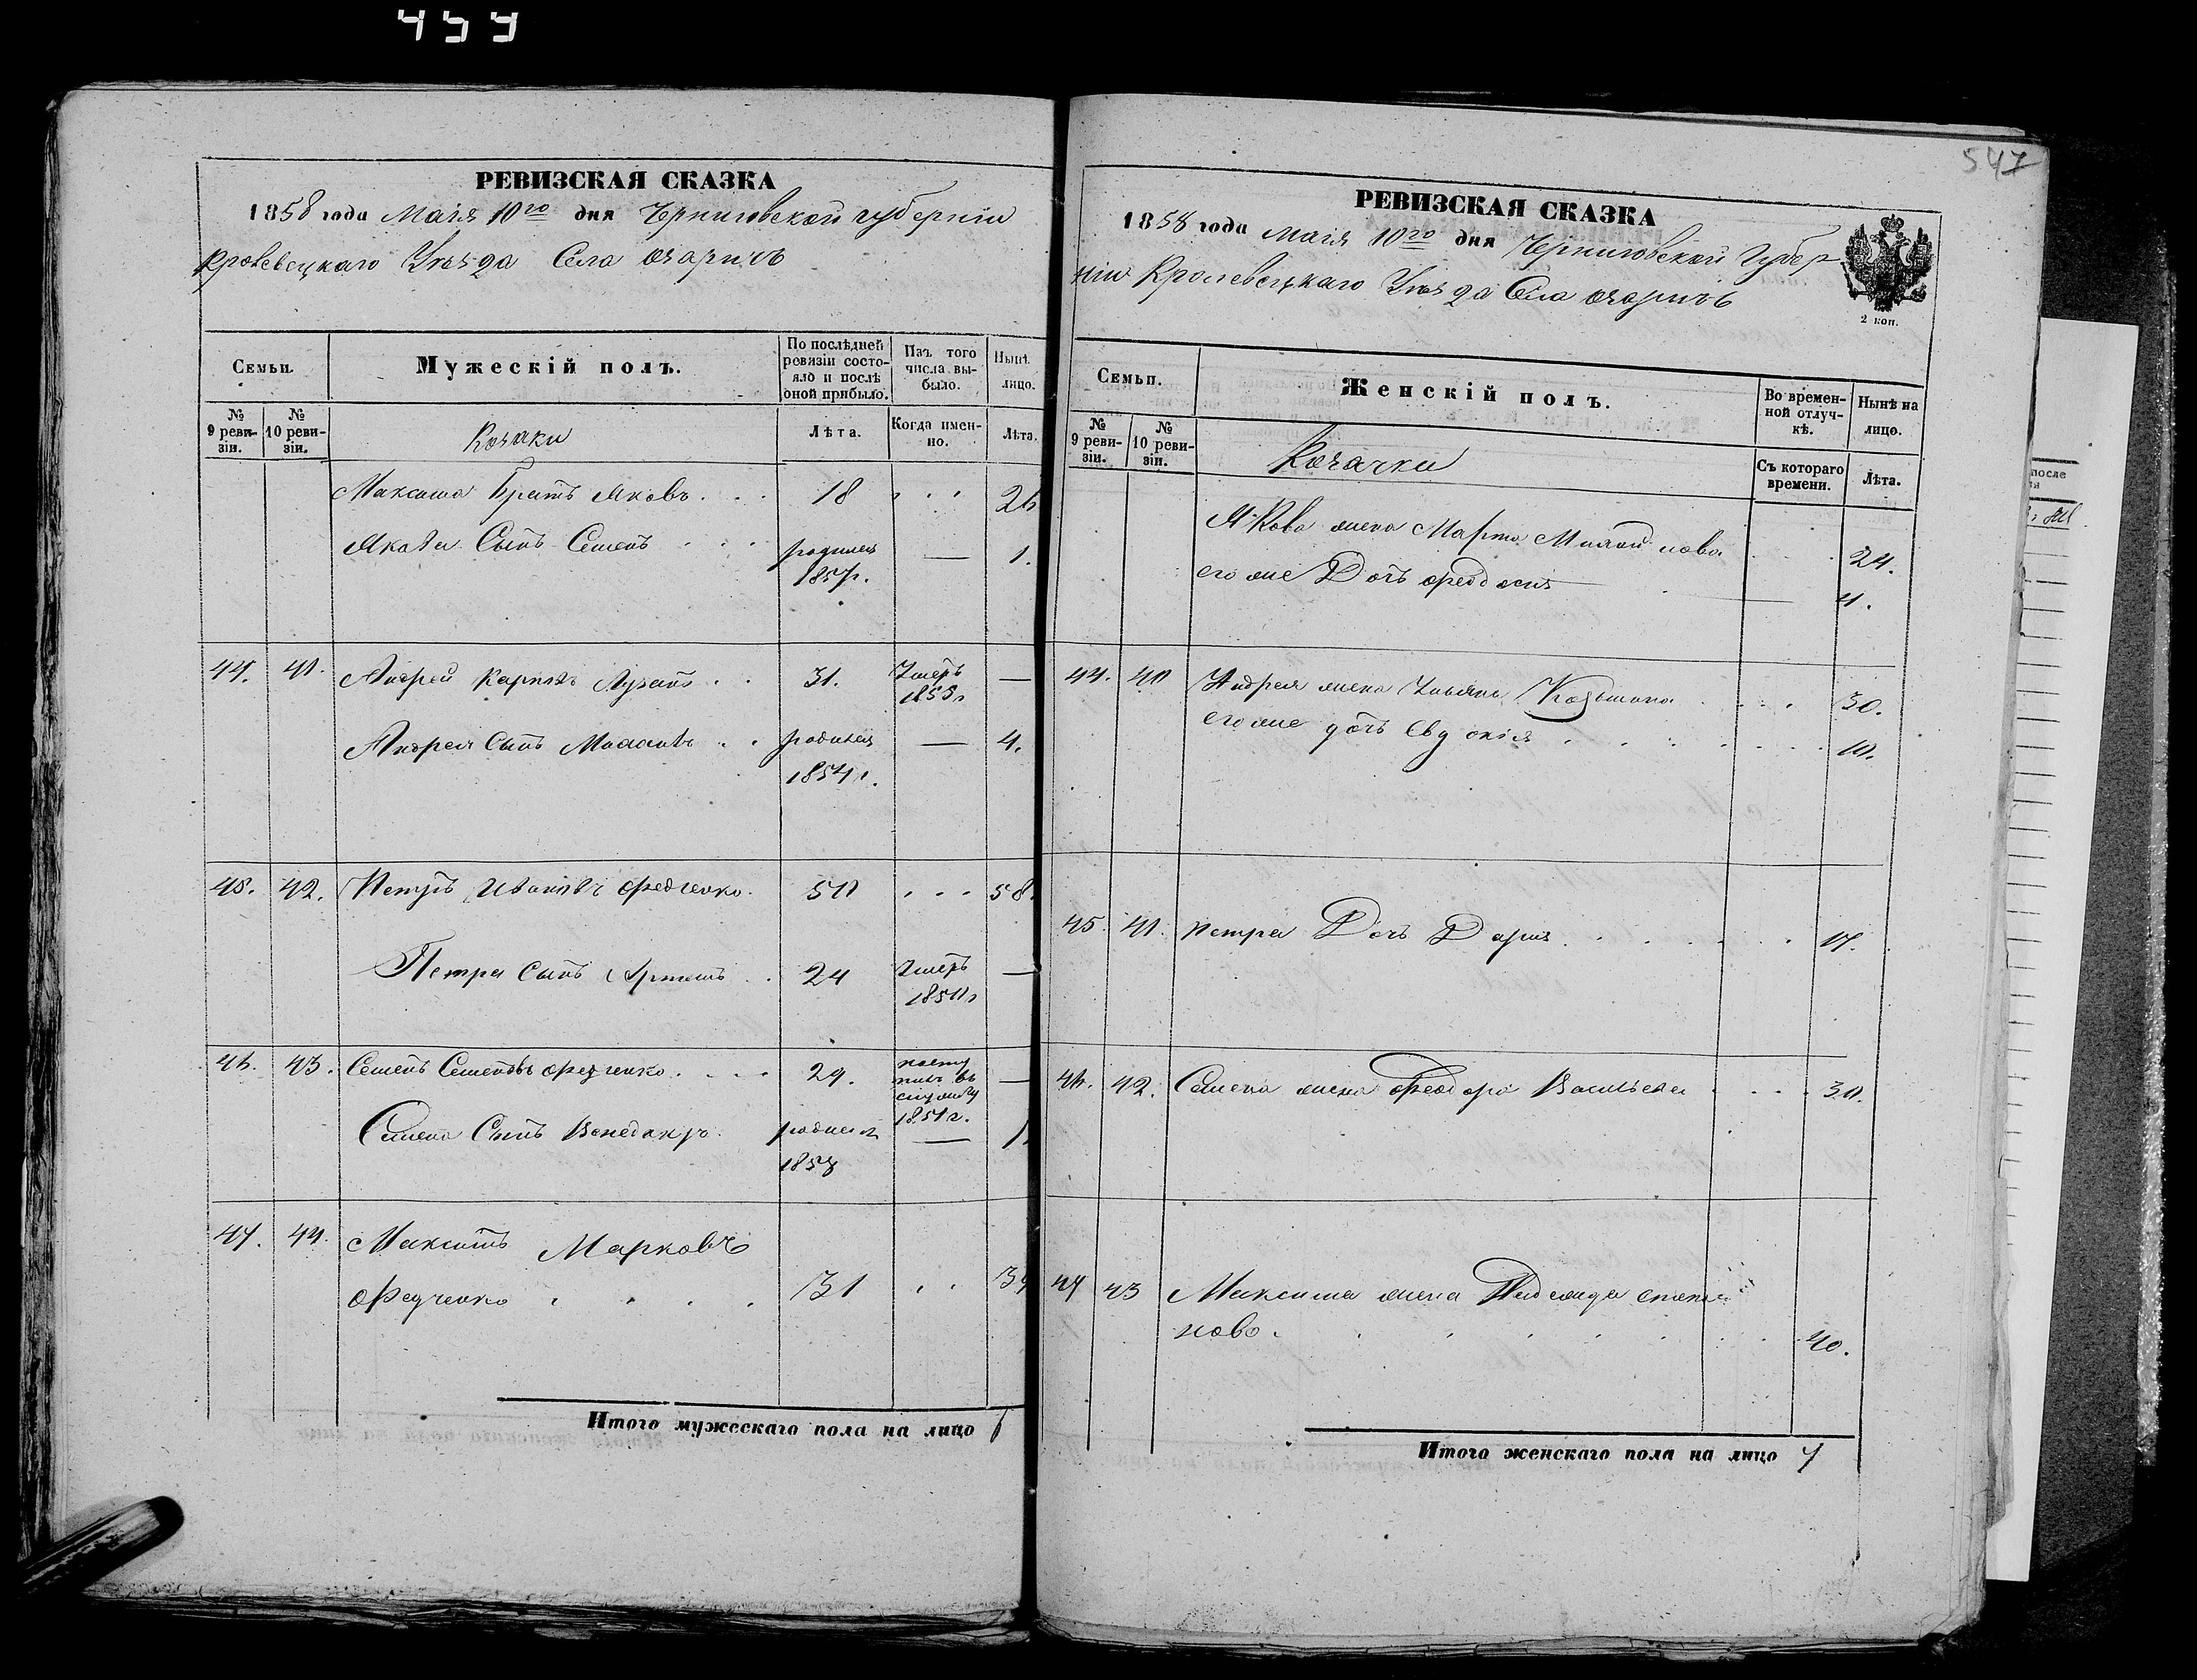 459
547
РЕВИЗСКАЯ СКАЗКА
1858 года Маія 10го дня Черниговской губерніи
Кролевецкаго Уѣзда Села Озаричъ
Семьи.
Мужескій полъ.
По послѣдней ревизіи состояло и послѣ оной прибыло.
Изъ того числа выбыло.
Нынѣ лицо.
№ 9 ревизіи.
№ 10 ревизіи.
Козаки
Лѣта.
Когда именно.
Лѣта.
Максима Братъ Яковъ . . . 18 . . . 26
Якова Сынъ Семенъ . . . родился 1857г. — 1.
44. 41. Андрей Карповъ . . 31. Умеръ 1853г —
Андрея Сынъ . . родился 1854г. — 4.
45. 42. Петръ Ивановъ Федченко. 50 . . . 58.
Петра Сынъ Артемъ . . 24 Умеръ 1850г —
46. 43. Семенъ Семеновъ Федченко . . . . 29. въ службу 1851г. —
Семена Сынъ родился 1857 — 1
47. 44. Максимъ Марковъ
Федченко . . . . 31 . . 39
Итого мужескаго пола на лицо 6
РЕВИЗСКАЯ СКАЗКА
1858 года Маія 10го дня Черниговской Губер
ніи Кролевецкаго Уѣзда Села Озаричъ
2 коп.
Семьи.
Женскій полъ.
Во временной отлучкѣ.
Нынѣ на лицо.
№ 9 ревизіи.
№ 10 ревизіи.
Козачки
Съ котораго времени.
Лѣта.
Якова жена Марфа . . . 24.
его же Дочь Феодосія — 4.
44. 40 Андрея жена Ульяна . . . 30.
его же дочь Евдокія . . . . . . 10.
45. 41. Петра Дочь Дарія . . . . . 17.
46. 42. Семена жена Феодора Васильева . . . 30.
47 43 Максима жена Степа
нова . . . . . . . 40.
Итого женскаго пола на лицо 7
после